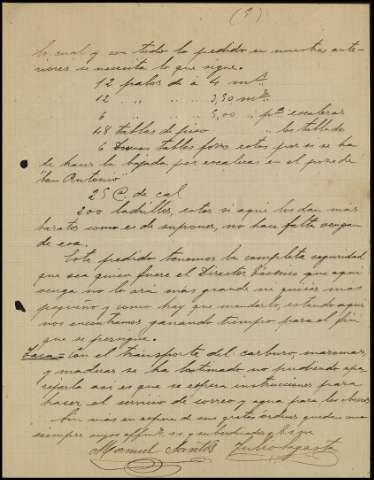 (3)
lo cual y con todo lo pedido en nuestras ante-
riores se necesita lo que sigue.
12 palos de á 4 mts.
12 " " " 3,50 mts.
6 " " 5,00 " pa escaleras
48 tablas de piso " los tablado
6 tablas foros estos por es se ha
de hacer la bajada por escaleras en el pozo de
"San Antonio"
25 @ de cal
200 ladrillos, estos si aqui los dan más
baratos como es de suponer, no hace falta vengan
de esa.
Este pedido tenemos la completa seguridad
que sea quien fuere el Director que aqui
venga no lo ará más grande ni quizás más
pequeño y como hay que mandarlo, estando aqui
nos encontramos ganando tiempo para el fin
que se persigue.
Con el transporte del carburo,
y maderas se ha no pudiendo apa
rejarla asi es que se espera instrucciones para
hacer el servicio de correo y agua para los
Sin más en espera de sus gratas órdenes quedan como
siempre suyos affmos. s.s. y subordinados q.b.s.m.
Manuel Santos Julio